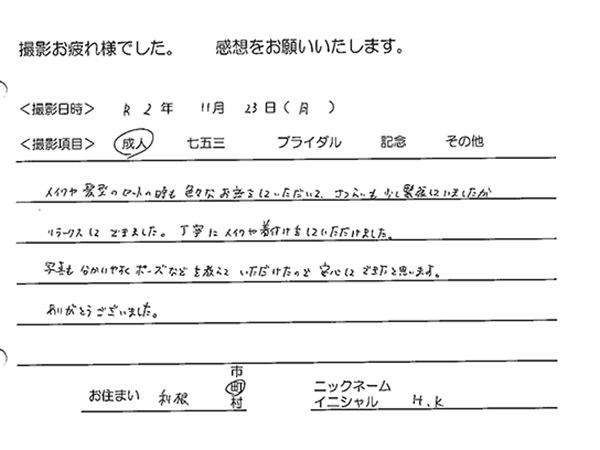 撮影お疲れ様でした。 感想をお願いいたします。
<撮影日時> R 2 年 11月 23日(月)
<撮影項目> 成人 七五三 ブライダル 記念 その他
メイクや髪型のセットの時も色々なお話をしていただいて、 少し緊張していましたが
リラックスしてできました。丁寧にメイクや着付けをしていただけました。
写真も分かりやすくポーズなどを教えていただけたので安心してできたと思います。
ありがとうございました。
お住まい 利根 市町村 ニックネーム イニシャル H.K